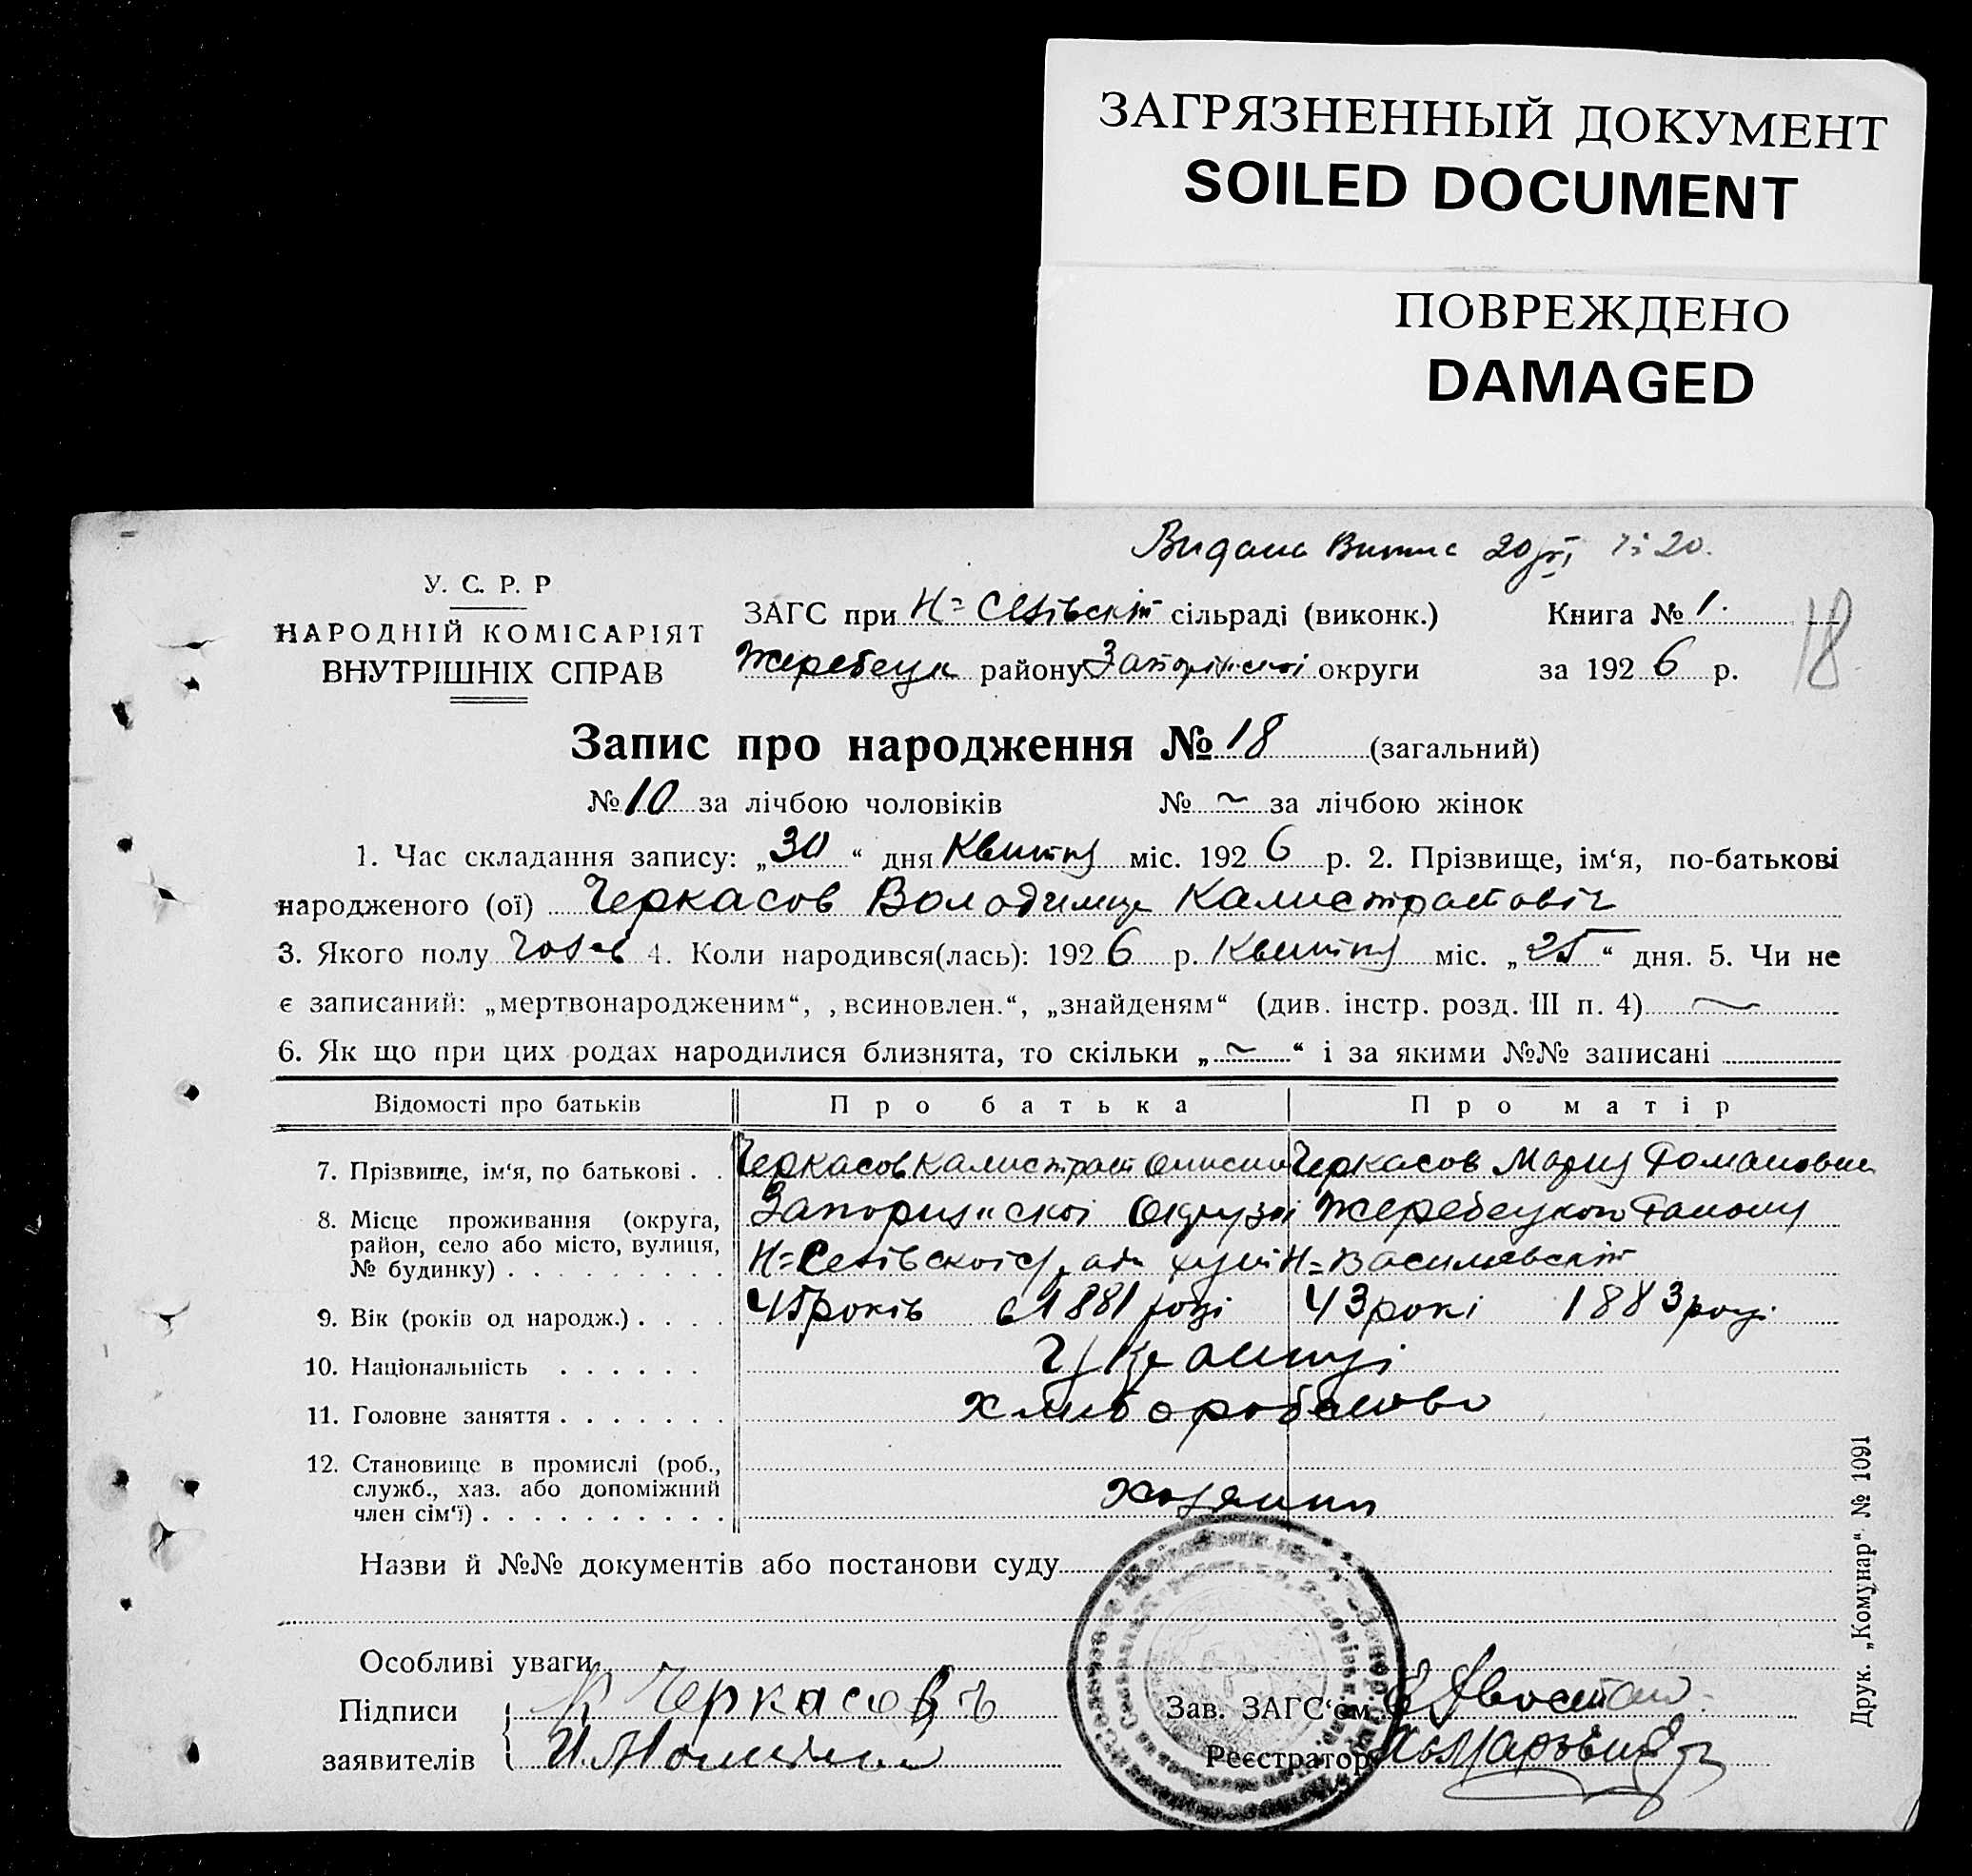 ЗАГРЯЗНЕННЫЙ ДОКУМЕНТ
SOILED DOCUMENT
ПОВРЕЖДЕНО
DAMAGED
Видана 20
У. С. Р. Р
НАРОДНІЙ КОМІСАРІЯТ
ВНУТРІШНІХ СПРАВ
ЗАГС при сільраді (виконк.) Книга № 1.
Жеребецк району округи за 1926 р.
18
Запис про народження № 18 (загальний)
№ 10 за лічбою чоловіків № ~ за лічбою жінок
1. Час складання запису: „30“ дня Квитня міс. 1926 р. 2. Прізвище, ім‘я, по-батькові
народженого (ої) Черкасов Володимир Калистратовіч
3. Якого полу чол-в 4. Коли народився(лась): 1926 р. Квитня міс. „25“ дня. 5. Чи не
є записаний: „мертвонародженим“, „всиновлен.“, „знайденям“ (див. інстр. розд. III п. 4) ~
6. Як що при цих родах народилися близнята, то скільки „~“ і за якими №№ записані
Відомості про батьків Про батька Про матір
7. Прізвище, ім‘я, по батькові . . Черкасов Калистрат Черкасов Мария Романовна
8. Місце проживання (округа, район, село або місто, вулиця, № будинку) . . . . . . . . . Округи Жеребецкого Району
9. Вік (років од народж.) . . . . 45 років 1881 році 43 рокі 1883 році
10. Національність . . . . . . Українці
11. Головне заняття . . . . . . .
12. Становище в промислі (роб., служб., хаз. або допоміжний член сім‘ї) . . . . . . . . . . Хозяини
Назви й №№ документів або постанови суду
Особливі уваги
Підписи К Черкасовъ Зав. ЗАГС‘ом
заявителів Реєстратор
Друк. „Комунар“ № 1091